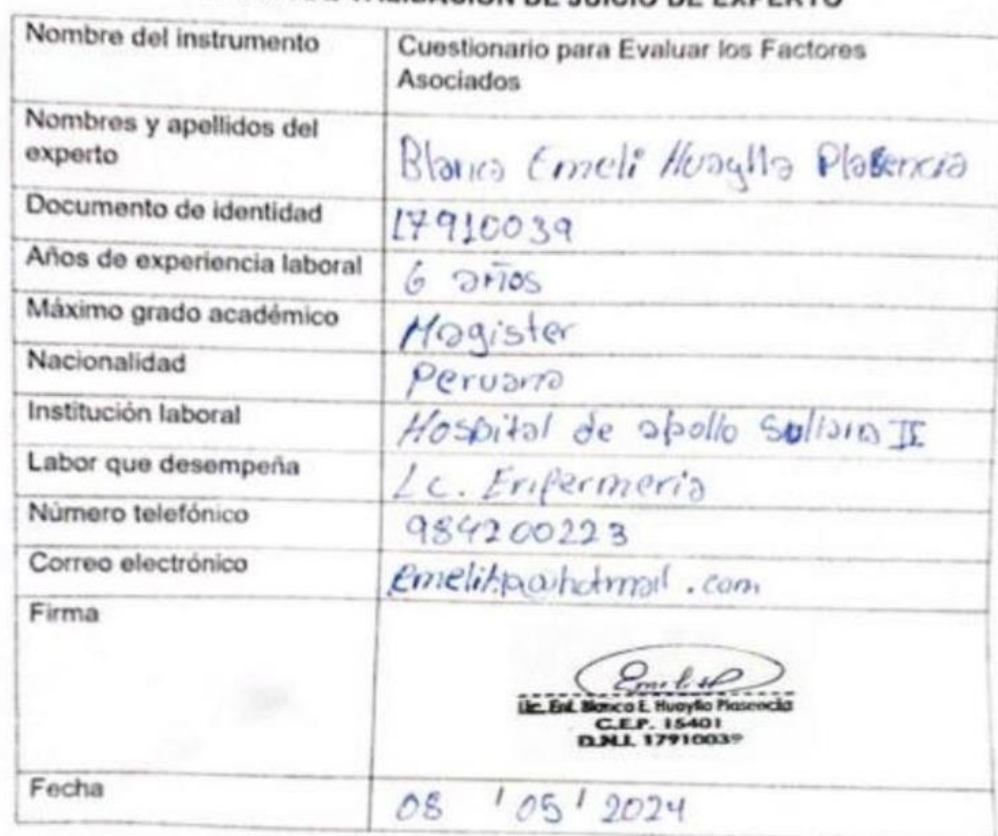 VALIDACIÓN DE JUICIO DE EXPERTO
Nombre del instrumento
Cuestionario para Evaluar los Factores
Asociados
Nombres y apellidos del
experto
Blanca Emeli Huaylla Plasencia
Documento de identidad
17910039
Años de experiencia laboral
6 años
Máximo grado académico
Magister
Nacionalidad
Peruana
Institución laboral
Hospital de apollo Sullana II
Labor que desempeña
Lc. Enfermeria
Número telefónico
984200223
Correo electrónico
Firma
Lic. Enf. Blanca E. Huaylla Plasencia
C.E.P. 15401
D.N.I. 17910039
Fecha
08 / 05 / 2024